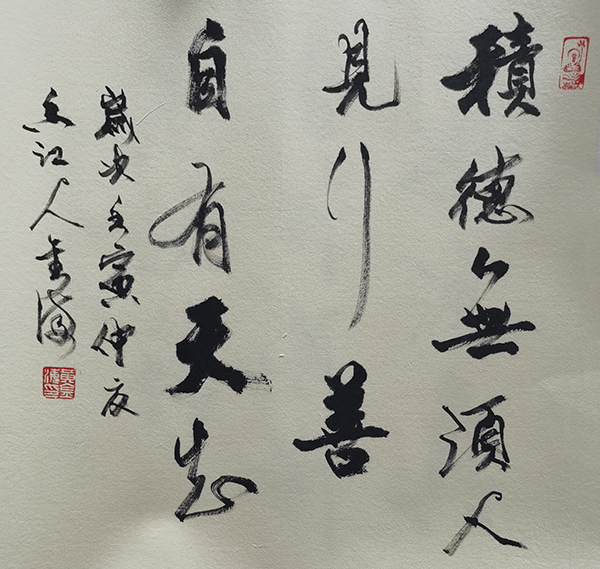 積德無須人
見行善
自有天知
歲次壬寅仲夏
人金海